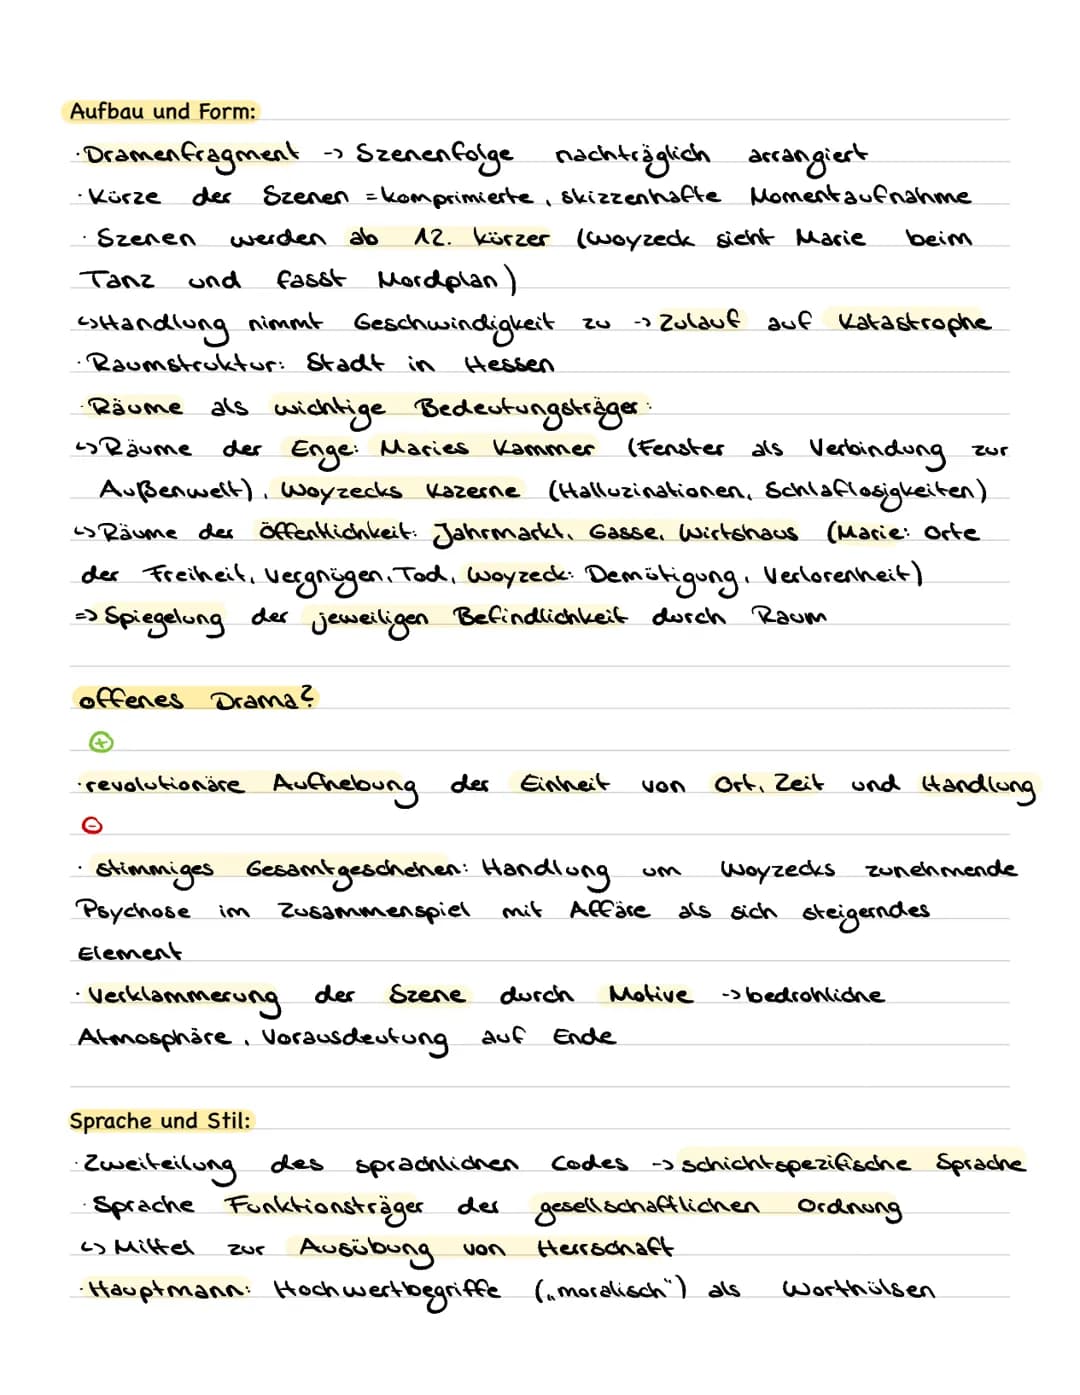 Aufbau und Form:
·Dramenfragment -> Szenenfolge nachträglich arrangiert
·Kürze der Szenen = komprimierte, skizzenhafte Momentaufnahme
·Szenen werden ab 12. kürzer (Woyzeck sieht Marie beim
Tanz und fasst Mordplan)
↳Handlung nimmt Geschwindigkeit zu -> Zulauf auf Katastrophe
·Raumstruktur: Stadt in Hessen
·Räume als wichtige Bedeutungsträger:
↳Räume der Enge: Maries Kammer (Fenster als Verbindung zur
Außenwelt), Woyzecks Kazerne (Halluzinationen, Schlaflosigkeiten)
↳Räume der Öffentlichkeit: Jahrmarkt, Gasse, Wirtshaus (Marie: Orte
der Freiheit, Vergnügen, Tod, Woyzeck: Demütigung, Verlorenheit)
=> Spiegelung der jeweiligen Befindlichkeit durch Raum
offenes Drama?
+
·revolutionäre Aufhebung der Einheit von Ort, Zeit und Handlung
-
· stimmiges Gesamtgeschehen: Handlung um Woyzecks zunehmende
Psychose im Zusammenspiel mit Affäre als sich steigerndes
Element
·Verklammerung der Szene durch Motive -> bedrohliche
Atmosphäre, Vorausdeutung auf Ende
Sprache und Stil:
·Zweiteilung des sprachlichen Codes -> schichtspezifische Sprache
·Sprache Funktionsträger der gesellschaftlichen Ordnung
↳ Mittel zur Ausübung von Herrschaft
·Hauptmann: Hochwertbegriffe („moralisch") als Worthülsen